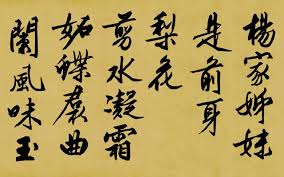 楊家姊妹
是前身
梨花
剪水凝霜
妬蝶羣曲
闌風味玉